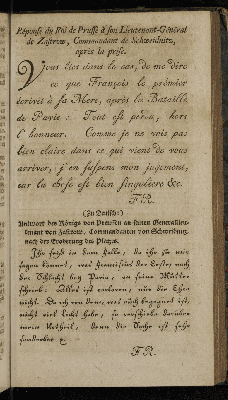 Réponse du Roi de Prusse à son Lieutenant-Général
de Zastrow, Commandant de Schweidnitz,
après la prise.
Vous êtes dans le cas, de me dire
ce que François le premier
écrivit à sa Mere, après la Bataille
de Pavie: Tout est perdu, hors
l'honneur. Comme je ne vois pas
bien claire dans ce qui vient de vous
arriver, j'en suspens mon jugement,
car la chose est bien singulière &c.
FR.
(Zu Deutsch:)
Antwort des Königs von Preußen an seinen Generallieu-
tenant von Zastrow, Commandanten von Schweidnitz,
nach der Eroberung des Platzes.
Ihr seyd in dem Falle, da ihr zu mir
sagen könnet, was Franciscus der Erste nach
der Schlacht bey Pavia, an seine Mutter
schrieb: Alles ist verloren, nur die Ehre
nicht. Da ich von dem, was euch begegnet ist,
nicht viel Licht habe, so verschiebe darüber
mein Urtheil, denn die Sache ist sehr
sonderbar &c.
F R.